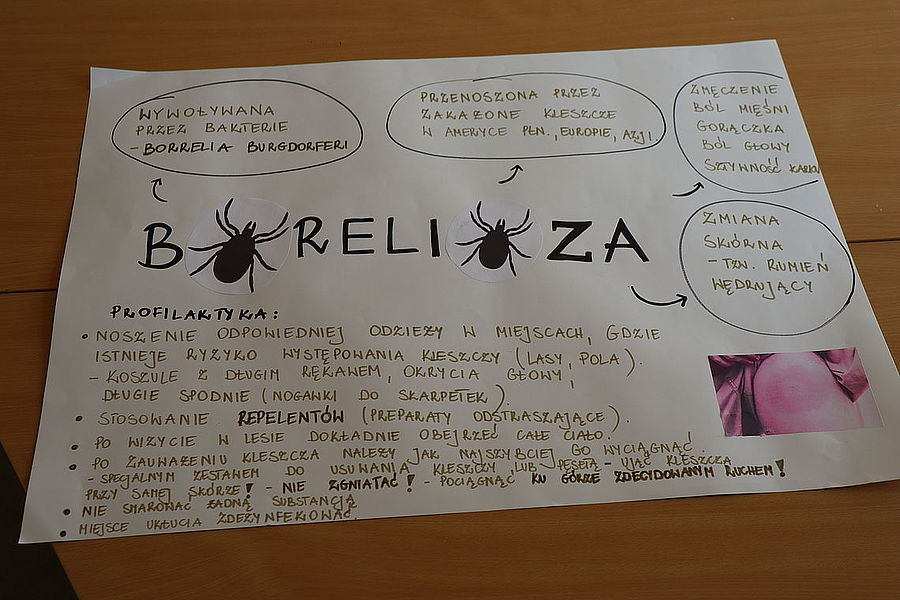 WYWOŁYWANA
PRZEZ BAKTERIE
- BORRELIA BURGDORFERI
PRZENOSZONA PRZEZ
ZAKAŻONE KLESZCZE
W AMERYCE PŁN., EUROPIE, AZJI.
ZMĘCZENIE
BÓL MIĘŚNI
GORĄCZKA
BÓL GŁOWY
SZTYWNOŚĆ KARKU
BORELIOZA
ZMIANA
SKÓRNA
- TZW. RUMIEŃ
WĘDRUJĄCY
PROFILAKTYKA:
• NOSZENIE ODPOWIEDNIEJ ODZIEŻY W MIEJSCACH, GDZIE
ISTNIEJE RYZYKO WYSTĘPOWANIA KLESZCZY (LASY, POLA).
- KOSZULE Z DŁUGIM RĘKAWEM, OKRYCIA GŁOWY,
DŁUGIE SPODNIE (NOGAWKI DO SKARPETEK).
• STOSOWANIE REPELENTÓW (PREPARATY ODSTRASZAJĄCE).
• PO WIZYCIE W LESIE DOKŁADNIE OBEJRZEĆ CAŁE CIAŁO.
• PO ZAUWAŻENIU KLESZCZA NALEŻY JAK NAJSZYBCIEJ GO WYCIĄGNĄĆ
- SPECJALNYM ZESTAWEM DO USUWANIA KLESZCZY, LUB PESETĄ - UJĄĆ KLESZCZA
PRZY SAMEJ SKÓRZE! - NIE ZGNIATAĆ! - POCIĄGNĄĆ KU GÓRZE ZDECYDOWANYM RUCHEM!
• NIE SMAROWAĆ ŻADNĄ SUBSTANCJĄ
• MIEJSCE UKŁUCIA ZDEZYNFEKOWAĆ.